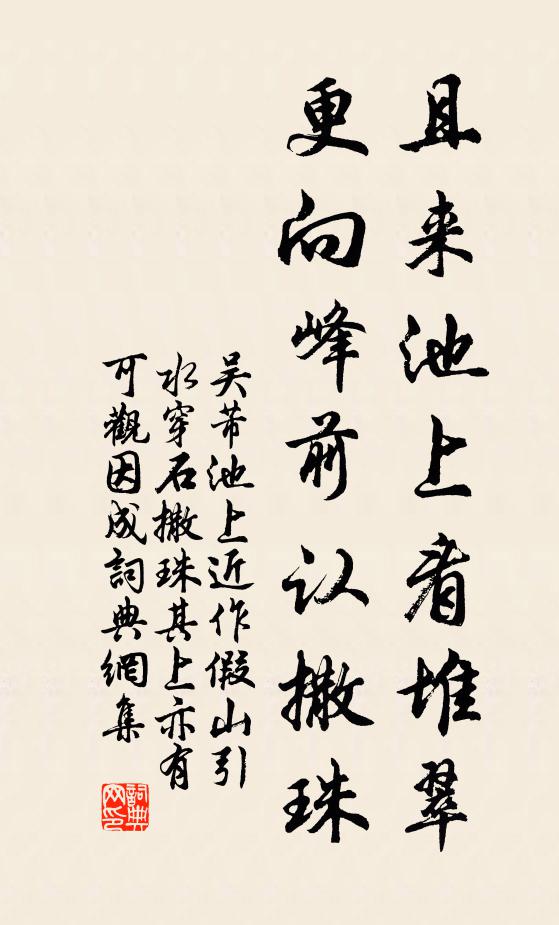 且来池上看堆翠
更向峰前认撒珠
吴芾池上近作假山引
水穿石撒珠其上亦有
可觀因成詞典網集
詞典
网印